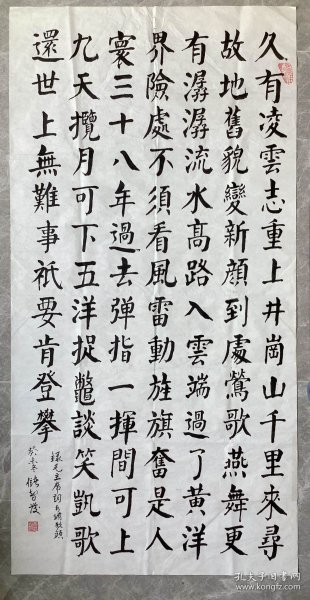 久有凌雲志重上井崗山千里來尋
故地舊貌變新顔到處鶯歌燕舞更
有潺潺流水高路入雲端過了黃洋
界險處不須看風雷動旌旗奮是人
寰三十八年過去彈指一揮間可上
九天攬月可下五洋捉鼈談笑凱歌
還世上無難事祇要肯登攀